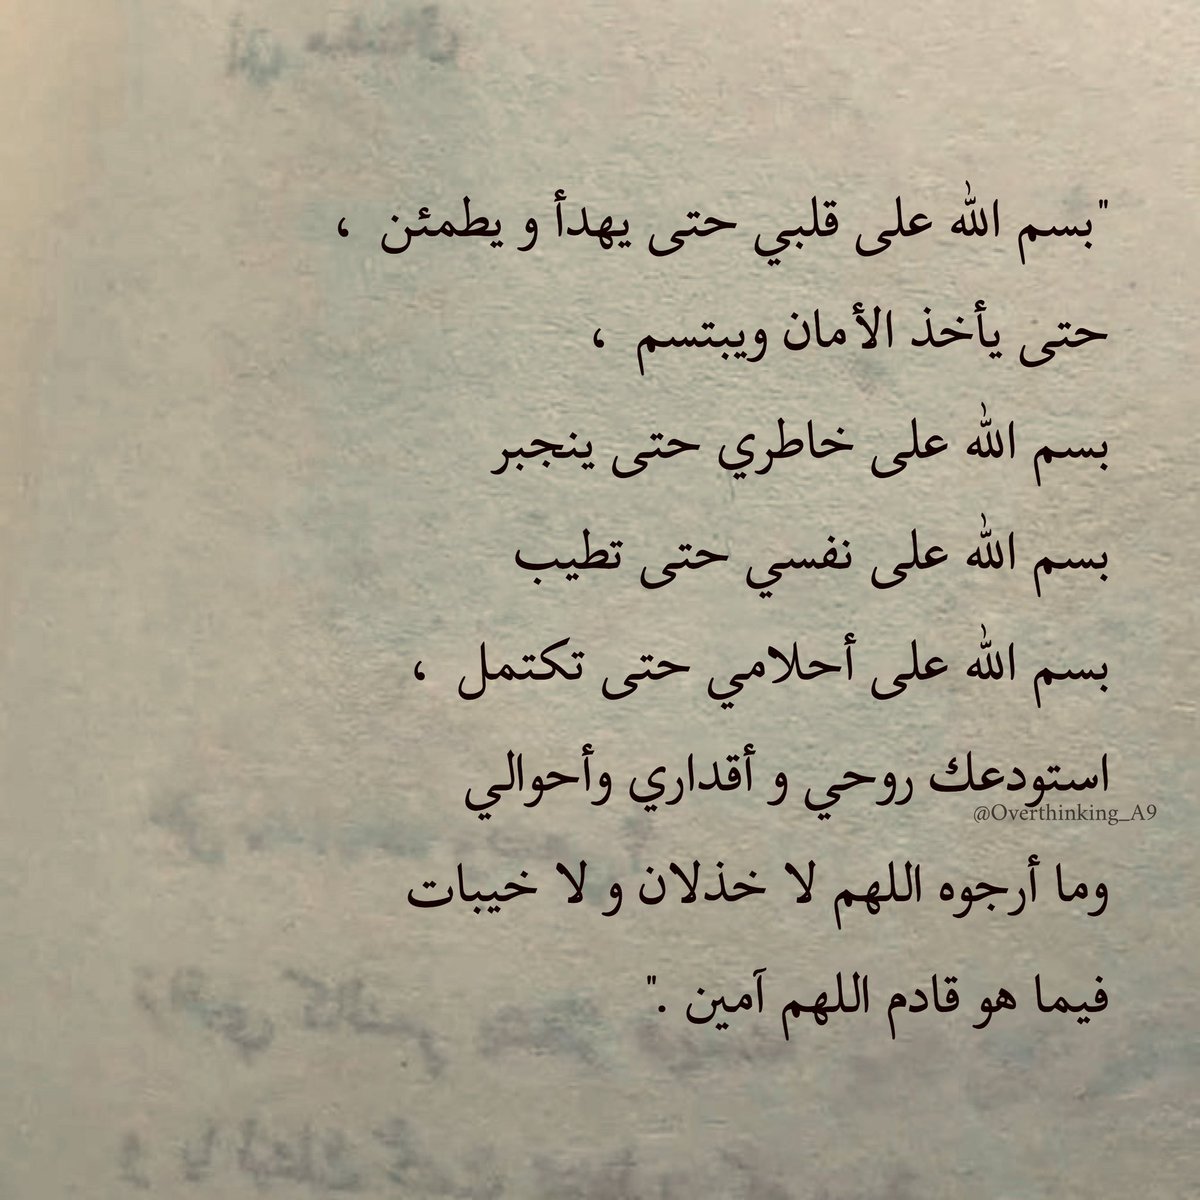 "بسم الله على قلبي حتى يهدأ و يطمئن ،
حتى يأخذ الأمان ويبتسم ،
بسم الله على خاطري حتى ينجبر
بسم الله على نفسي حتى تطيب
بسم الله على أحلامي حتى تكتمل ،
استودعك روحي و أقداري وأحوالي
@Overthinking_A9
وما أرجوه اللهم لا خذلان و لا خيبات
فيما هو قادم اللهم آمين ."